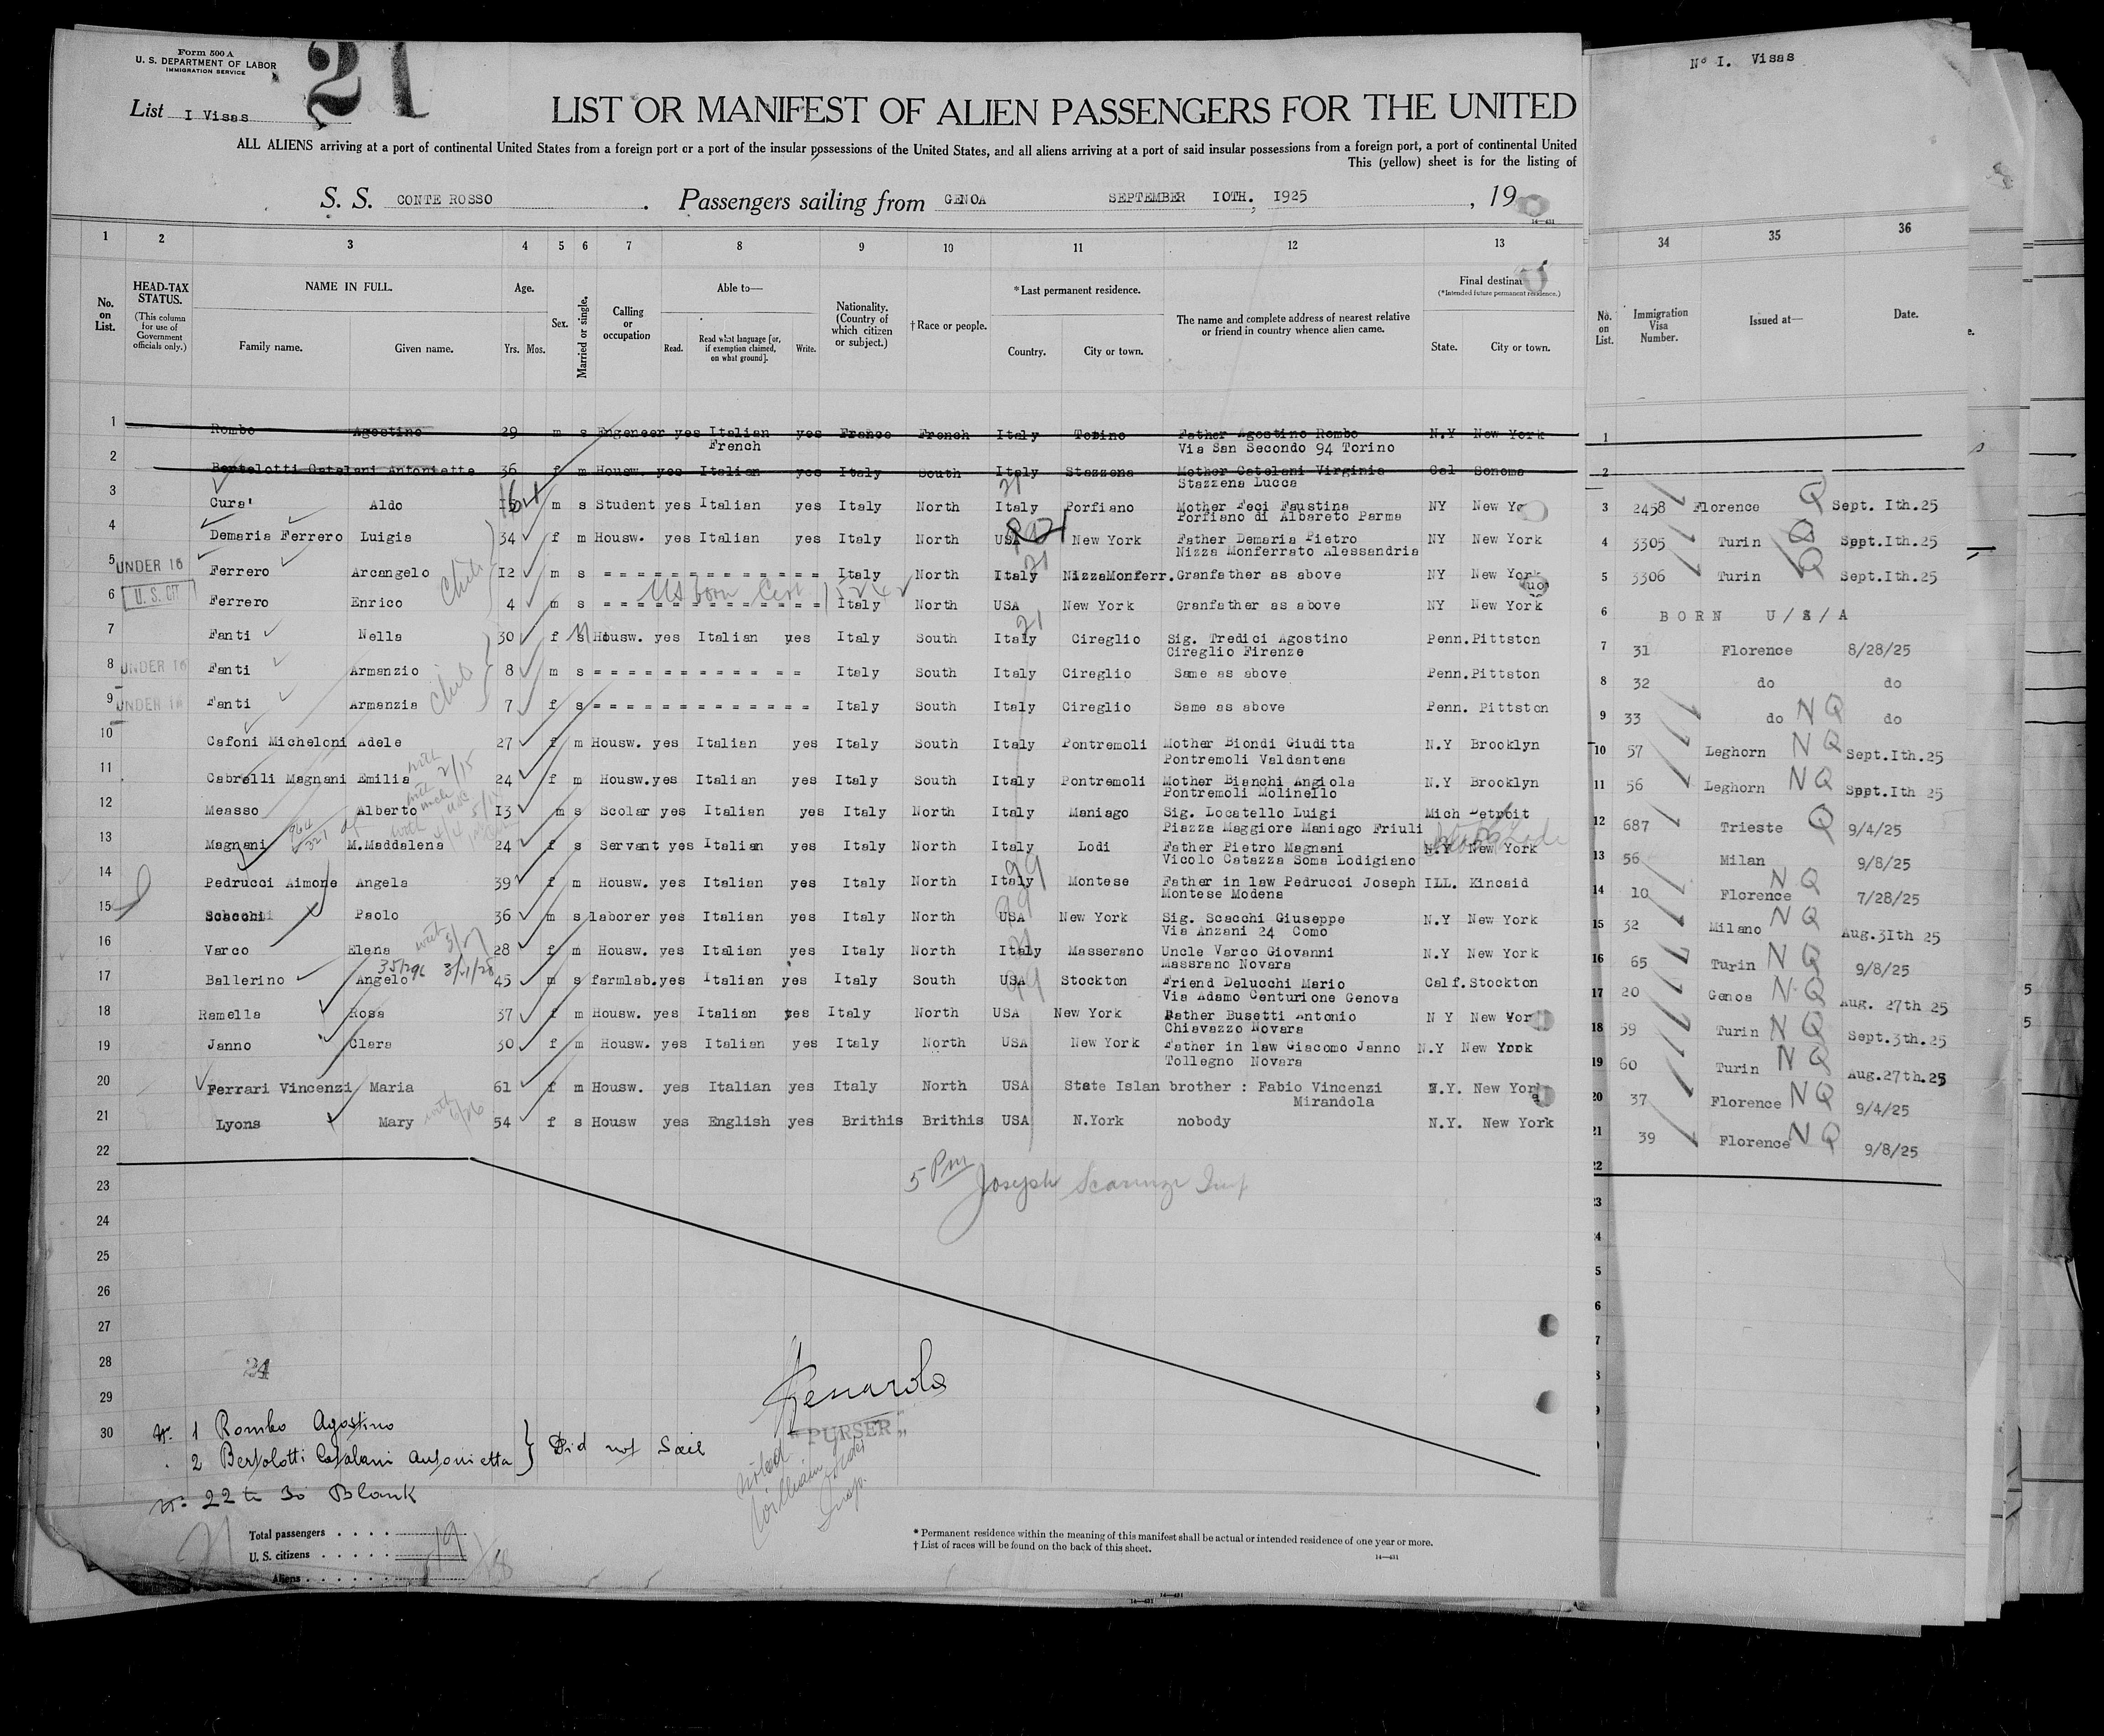 Form 500 A
U. S. DEPARTMENT OF LABOR
IMMIGRATION SERVICE
21
List I Visas
LIST OR MANIFEST OF ALIEN PASSENGERS FOR THE UNITED
ALL ALIENS arriving at a port of continental United States from a foreign port or a port of the insular possessions of the United States, and all aliens arriving at a port of said insular possessions from a foreign port, a port of continental United
This (yellow) sheet is for the listing of
S. S. CONTE ROSSO . Passengers sailing from GENOA SEPTEMBER IOTH. , I925 , 19
14—431
Nº I. Visas
1 2 3 4 5 6 7 8 9 10 11 12 13 34 35 36
No. on List.
HEAD-TAX STATUS.
(This column for use of Government officials only.)
NAME IN FULL.
Family name. Given name.
Age.
Yrs. Mos.
Sex.
Married or single.
Calling or occupation
Able to—
Read. Read what language [or, if exemption claimed, on what ground]. Write.
Nationality. (Country of which citizen or subject.)
† Race or people.
*Last permanent residence.
Country. City or town.
The name and complete address of nearest relative or friend in country whence alien came.
Final destinat
(*Intended future permanent residence.)
State. City or town.
No. on List.
Immigration Visa Number.
Issued at—
Date.
1 Rombo Agostino 29 m s Engeneer yes Italian yes France French Italy Torino Father Agostino Rombo N.Y New York 1
French Via San Secondo 94 Torino
2 Bertolotti Catelani Antoniette 36 f m Housw. yes Italian yes Italy South Italy Stazzena Mother Catelani Virginia Cal Sonoma 2
Stazzena Lucca
3 Cura' Aldo 16 m s Student yes Italian yes Italy North Italy Porfiano Mother Feci Faustina NY New Yo 3 2458 Florence Q Sept. Ith.25
Porfiano di Albareto Parma
4 Demaria Ferrero Luigia 34 f m Housw. yes Italian yes Italy North USA New York Father Demaria Pietro NY New York 4 3305 Turin Q Sept.Ith.25
Nizza Monferrato Alessandria
5 UNDER 16 Ferrero Arcangelo I2 m s = = = = = = = = = = = = = Italy North Italy NizzaMonferr. Granfather as above NY New York 5 3306 Turin Q Sept.Ith.25
6 U. S. CIT Ferrero Enrico 4 m s = = = = = = = = = = = = = Italy North USA New York Granfather as above NY New York 6 BORN U/S/A
US born Cert
7 Fanti Nella 30 f s M Housw. yes Italian yes Italy South Italy Cireglio Sig. Tredici Agostino Penn. Pittston 7 31 Florence 8/28/25
Cireglio Firenze
8 UNDER 16 Fanti Armanzio 8 m s = = = = = = = = = = = = Italy South Italy Cireglio Same as above Penn. Pittston 8 32 do do
9 UNDER 16 Fanti Armanzia 7 f s = = = = = = = = = = = = = Italy South Italy Cireglio Same as above Penn. Pittston 9 33 do N Q do
10 Cafoni Micheloni Adele 27 f m Housw. yes Italian yes Italy South Italy Pontremoli Mother Biondi Giuditta N.Y Brooklyn 10 57 Leghorn N Q Sept.Ith.25
Pontremoli Valdantena
11 Cabrelli Magnani Emilia 24 f m Housw. yes Italian yes Italy South Italy Pontremoli Mother Bianchi Angiola N.Y Brooklyn 11 56 Leghorn N Q Sept.Ith 25
Pontremoli Molinello
12 Measso Alberto I3 m s Scolar yes Italian yes Italy North Italy Maniago Sig. Locatello Luigi Mich Detroit 12 687 Trieste Q 9/4/25
Piazza Maggiore Maniago Friuli
13 Magnani M.Maddalena 24 f s Servant yes Italian yes Italy North Italy Lodi Father Pietro Magnani N.Y New York 13 56 Milan 9/8/25
Vicolo Catazza Soma Lodigiano
14 Pedrucci Aimone Angela 39 f m Housw. yes Italian yes Italy North Italy Montese Father in law Pedrucci Joseph ILL. Kincaid 14 10 Florence N Q 7/28/25
Montese Modena
15 Scacchi Paolo 36 m s laborer yes Italian yes Italy North USA New York Sig. Scacchi Giuseppe N.Y New York 15 32 Milano N Q Aug.3Ith 25
Via Anzani 24 Como
16 Varco Elena 28 f m Housw. yes Italian yes Italy North Italy Masserano Uncle Varco Giovanni N.Y New York 16 65 Turin N Q 9/8/25
Massrano Novara
17 Ballerino Angelo 45 m s farmlab. yes Italian yes Italy South USA Stockton Friend Delucchi Mario Calf. Stockton 17 20 Genoa N Q Aug. 27th 25
Via Adamo Centurione Genova
18 Ramella Rosa 37 f m Housw. yes Italian yes Italy North USA New York Father Busetti Antonio N Y New Yor 18 59 Turin N Q Sept.3th.25
Chiavazzo Novara
19 Janno Clara 30 f m Housw. yes Italian yes Italy North USA New York Father in law Giacomo Janno N.Y New York 19 60 Turin N Q Aug.27th.25
Tollegno Novara
20 Ferrari Vincenzi Maria 61 f m Housw. yes Italian yes Italy North USA State Islan brother : Fabio Vincenzi N.Y. New York 20 37 Florence N Q 9/4/25
Mirandola
21 Lyons Mary 54 f s Housw yes English yes Brithis Brithis USA N.York nobody N.Y. New York 21 39 Florence N Q 9/8/25
22
23
24
25
26
27
28
29
30
5 Pm Joseph
24
1 Rombo Agostino
2 Bertolotti Catalani Antonietta } Did not Sail
22 to 30 Blank
"PURSER"
noted
William
Insp.
Total passengers . . . . 19
U. S. citizens . . . . .
Aliens . . . . . . . 18
* Permanent residence within the meaning of this manifest shall be actual or intended residence of one year or more.
† List of races will be found on the back of this sheet.
14—431